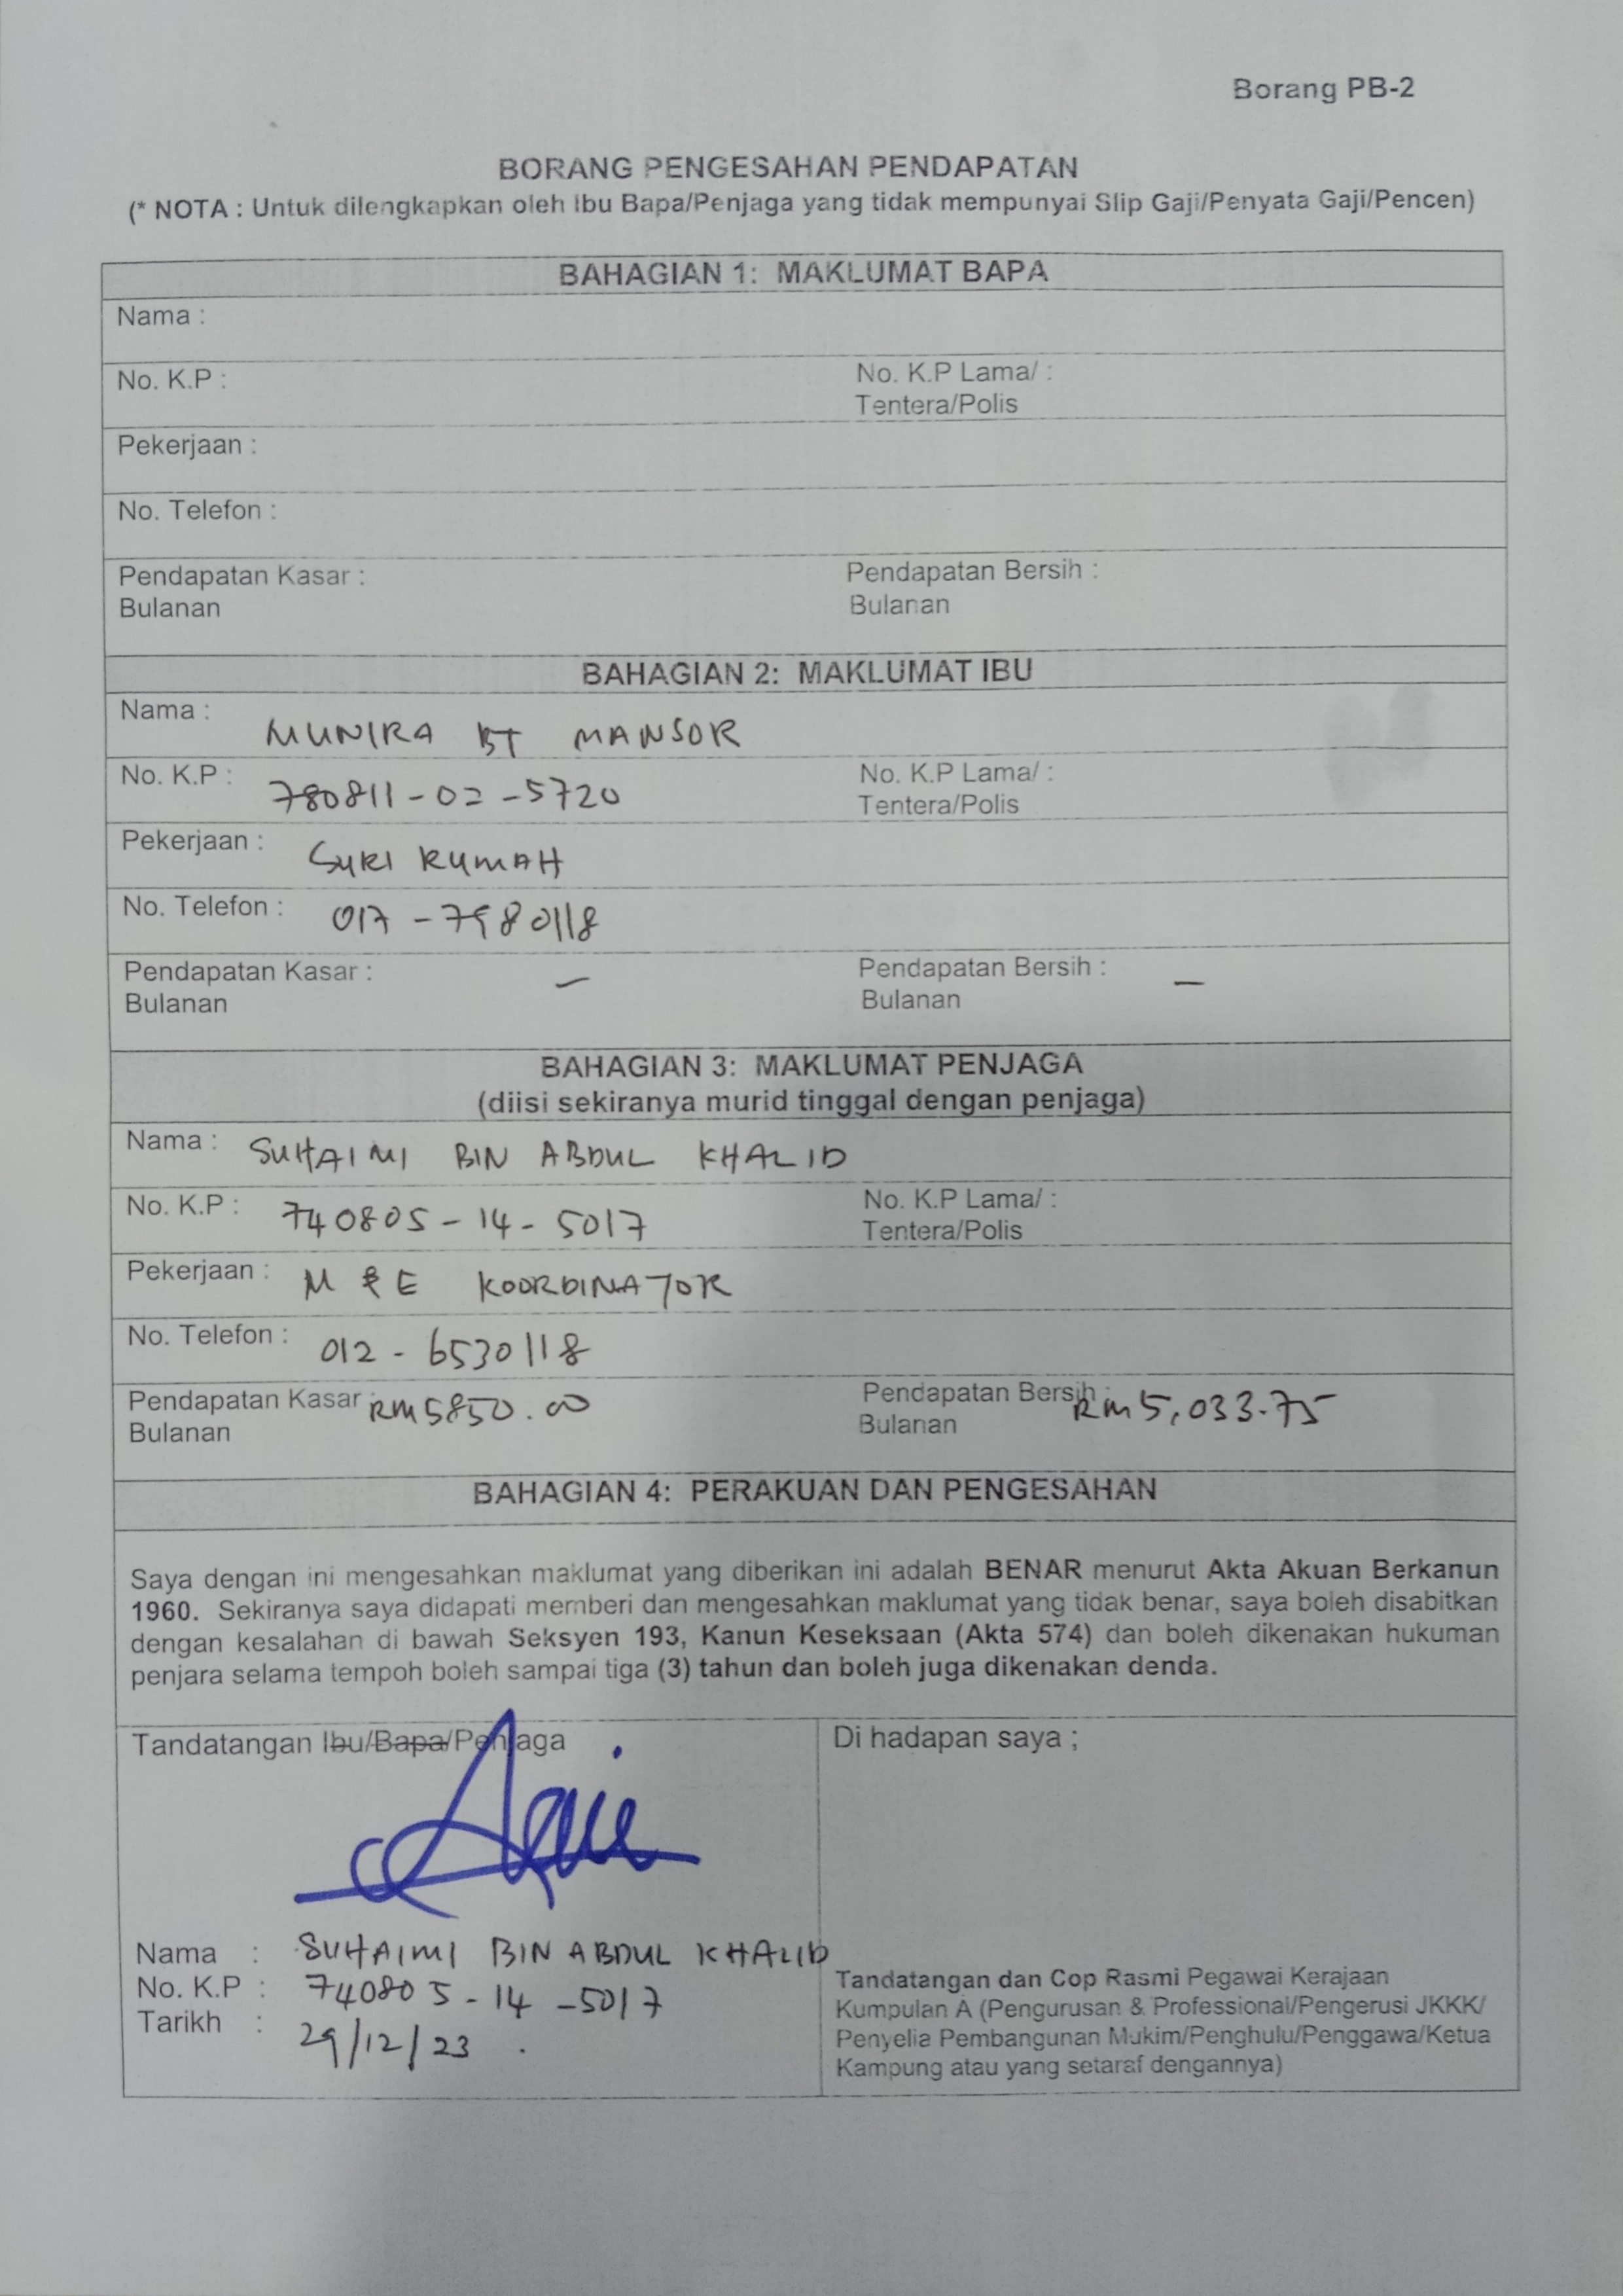 Borang PB-2
BORANG PENGESAHAN PENDAPATAN
(* NOTA : Untuk dilengkapkan oleh Ibu Bapa/Penjaga yang tidak mempunyai Slip Gaji/Penyata Gaji/Pencen)
BAHAGIAN 1: MAKLUMAT BAPA
Nama :
No. K.P : No. K.P Lama/ :
Tentera/Polis
Pekerjaan :
No. Telefon :
Pendapatan Kasar : Pendapatan Bersih :
Bulanan Bulanan
BAHAGIAN 2: MAKLUMAT IBU
Nama : MUNIRA BT MANSOR
No. K.P : 780811-02-5720 No. K.P Lama/ :
Tentera/Polis
Pekerjaan : SURI RUMAH
No. Telefon : 017-7980118
Pendapatan Kasar : – Pendapatan Bersih : –
Bulanan Bulanan
BAHAGIAN 3: MAKLUMAT PENJAGA
(diisi sekiranya murid tinggal dengan penjaga)
Nama : SUHAIMI BIN ABDUL KHALID
No. K.P : 740805-14-5017 No. K.P Lama/ :
Tentera/Polis
Pekerjaan : M & E KOORDINATOR
No. Telefon : 012-6530118
Pendapatan Kasar : RM5850.00 Pendapatan Bersih : RM5,033.75
Bulanan Bulanan
BAHAGIAN 4: PERAKUAN DAN PENGESAHAN
Saya dengan ini mengesahkan maklumat yang diberikan ini adalah BENAR menurut Akta Akuan Berkanun
1960. Sekiranya saya didapati memberi dan mengesahkan maklumat yang tidak benar, saya boleh disabitkan
dengan kesalahan di bawah Seksyen 193, Kanun Keseksaan (Akta 574) dan boleh dikenakan hukuman
penjara selama tempoh boleh sampai tiga (3) tahun dan boleh juga dikenakan denda.
Tandatangan Ibu/Bapa/Penjaga Di hadapan saya ;
Nama : SUHAIMI BIN ABDUL KHALID
No. K.P : 740805-14-5017
Tarikh : 29/12/23 .
Tandatangan dan Cop Rasmi Pegawai Kerajaan
Kumpulan A (Pengurusan & Professional/Pengerusi JKKK/
Penyelia Pembangunan Mukim/Penghulu/Penggawa/Ketua
Kampung atau yang setaraf dengannya)